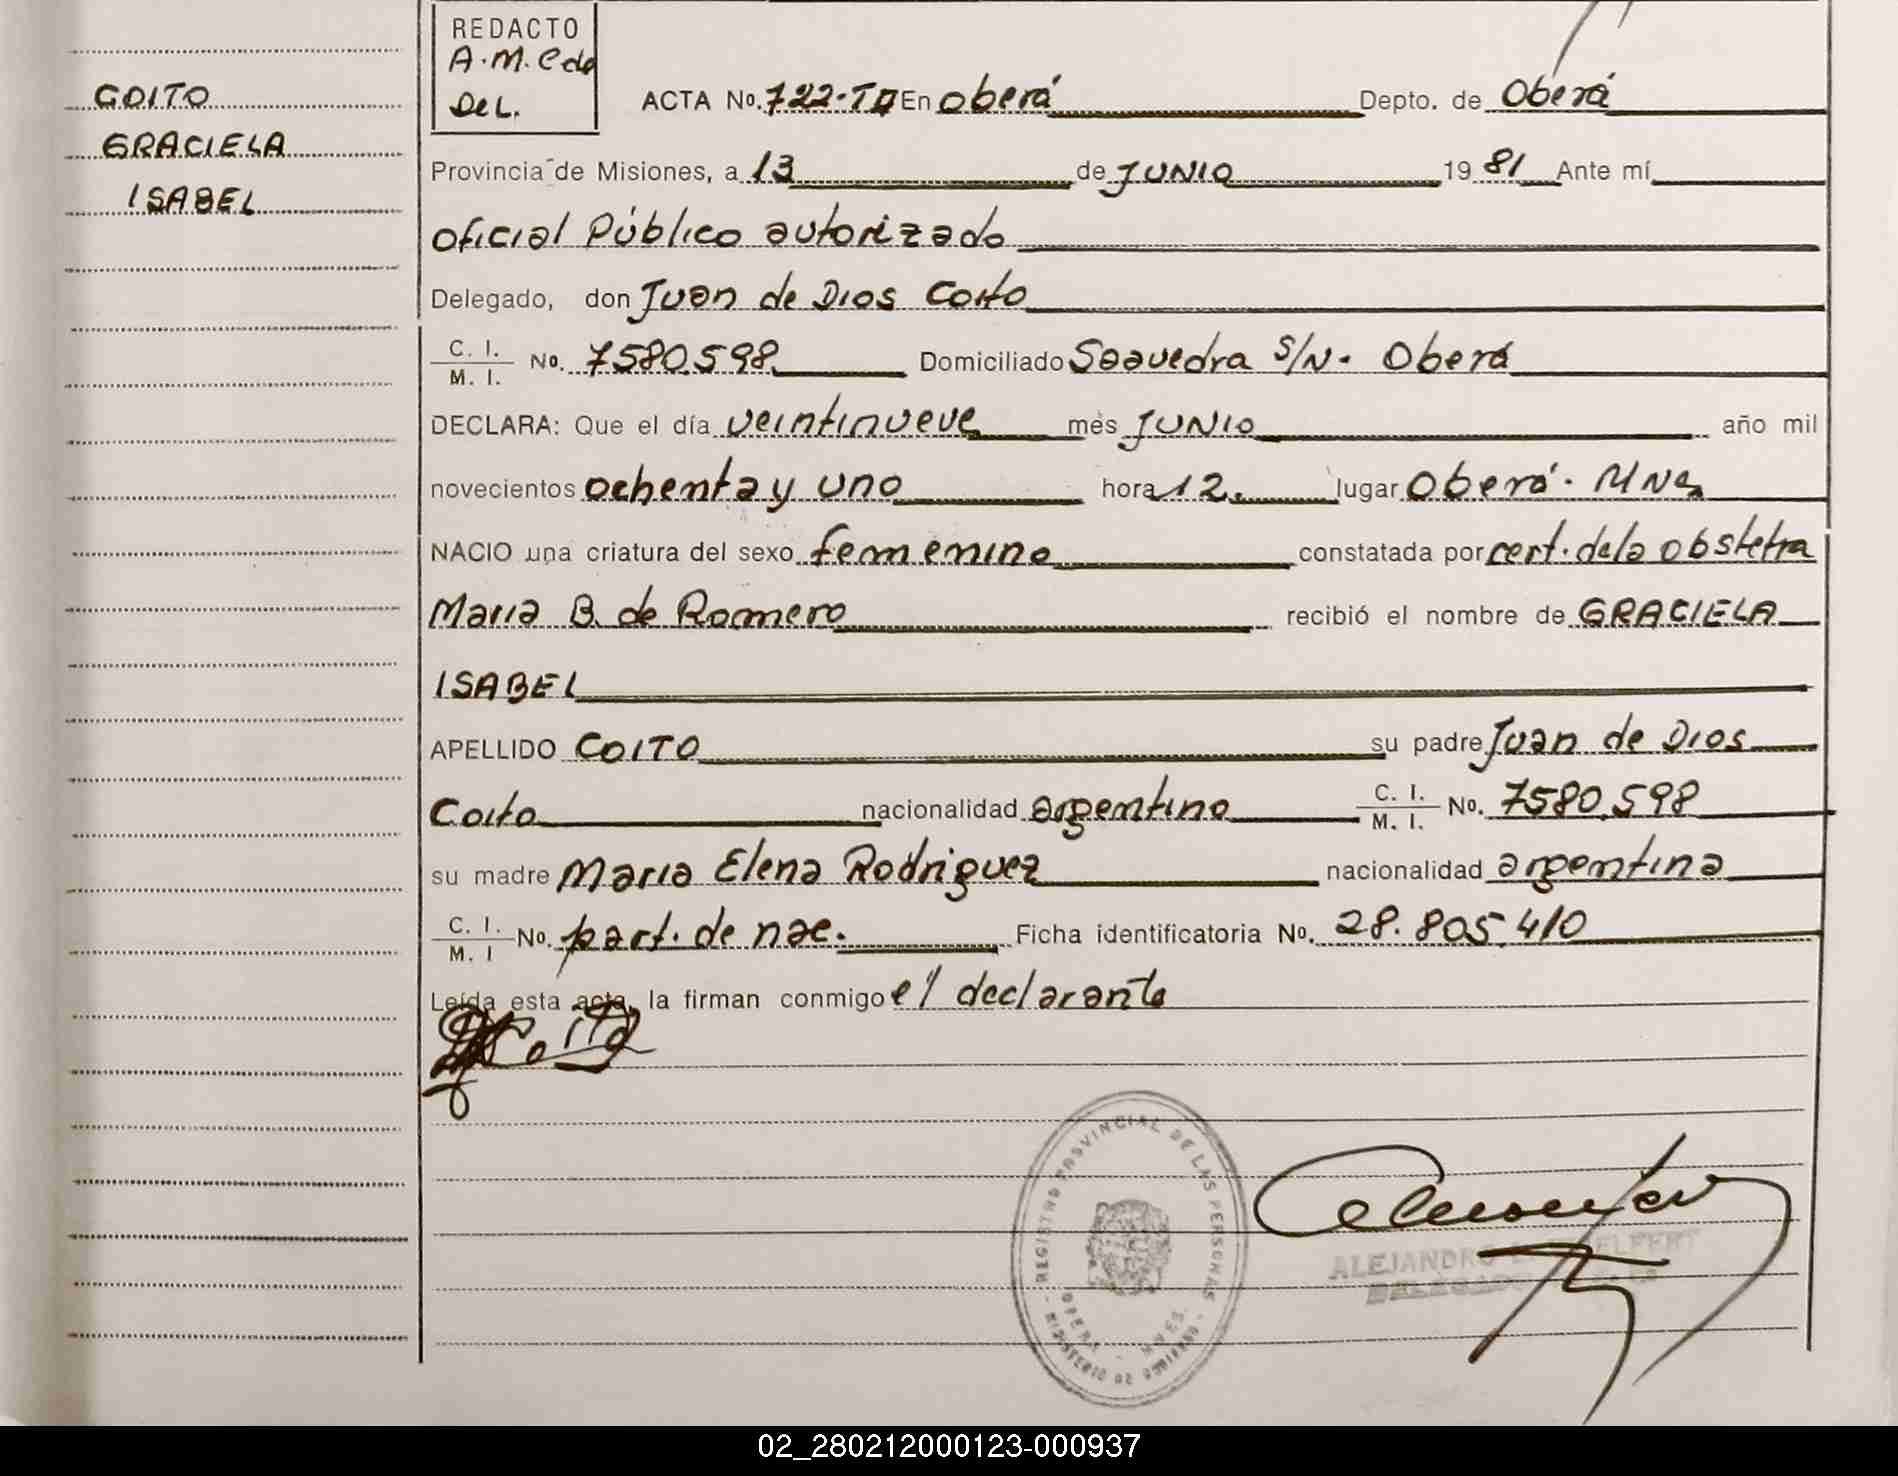 COITO
GRACIELA
ISABEL
REDACTO
A.M.C de
DeL.
ACTA No. 722-TII En Oberá Depto. de Oberá
Provincia de Misiones, a 13 de JUNIO 1981 Ante mí
oficial Público autorizado
Delegado, don Juan de Dios Coito
C. I. / M. I. No. 7580.598 Domiciliado Saavedra S/N. Oberá
DECLARA: Que el día veintinueve mes JUNIO año mil
novecientos ochenta y uno hora 12. lugar Oberá. MNes
NACIO una criatura del sexo femenino constatada por cert. de la obstetra
Maria B. de Romero recibió el nombre de GRACIELA
ISABEL
APELLIDO COITO su padre Juan de Dios
Coito nacionalidad argentino C. I. / M. I. No. 7580.598
su madre Maria Elena Rodriguez nacionalidad argentina
C. I. / M. I No. part. de nac. Ficha identificatoria No. 28.805.410
Leída esta acta, la firman conmigo el declarante
Coito
REGISTRO PROVINCIAL DE LAS PERSONAS
OBERA - MNES.
MINISTERIO DE GOBIERNO
ALEJANDRO
DELEGADO
02_280212000123-000937